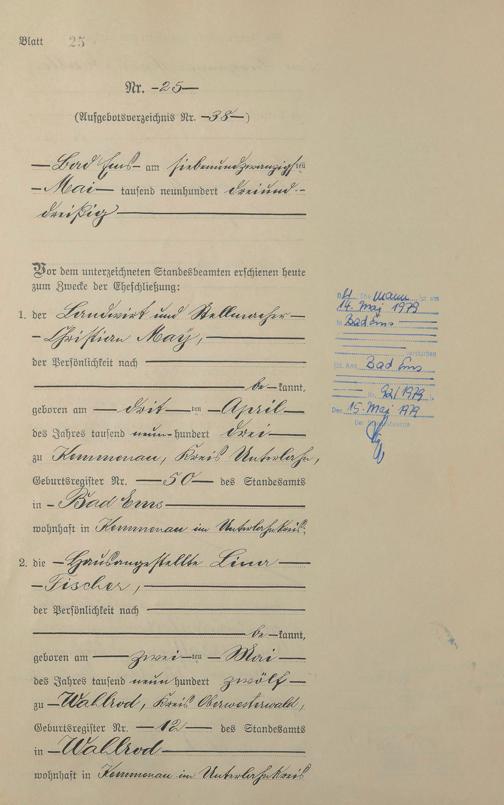 Blatt 25
Nr. -25-
(Aufgebotsverzeichnis Nr. -38-)
-Bad Ems- am siebenundzwanzigsten
-Mai- tausend neunhundert dreiund-
dreißig
Vor dem unterzeichneten Standesbeamten erschienen heute
zum Zwecke der Eheschließung:
1. der Landwirt und Stellmacher-
-Christian May,
der Persönlichkeit nach
be-kannt,
geboren am -drit-ten April-
des Jahres tausend neun-hundert drei-
zu Kemmenau, Kreis Unterlahn,
Geburtsregister Nr. -50- des Standesamts
in -Bad Ems-
wohnhaft in Kemmenau im Unterlahnkreis.
2. die -Hausangestellte Lina-
-Fischer,
der Persönlichkeit nach
be-kannt,
geboren am -zwei-ten -Mai-
des Jahres tausend neunhundert zwölf-
zu -Wahlrod, Kreis Oberwesterwald,
Geburtsregister Nr. -12- des Standesamts
in -Wahlrod-
wohnhaft in Kemmenau im Unterlahnkreis
Ehemann ist am
14. Mai 1979
in Bad Ems
verstorben
Bad Ems
Nr. 92/1979
Den 15. Mai 1979